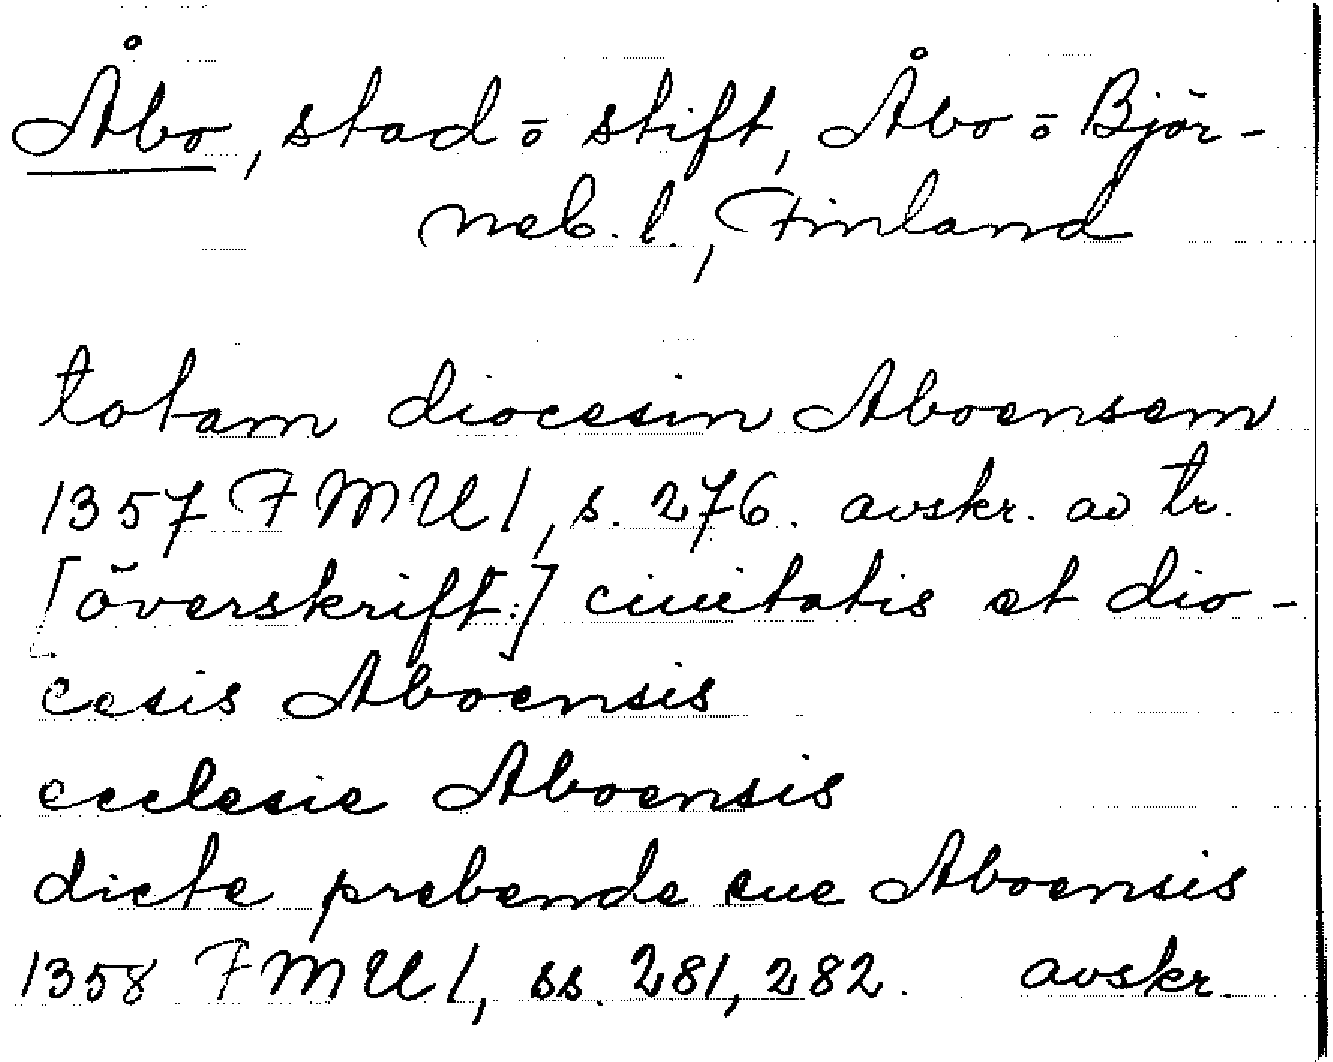 Åbo, stad o stift, Åbo o Björ-
neb. l., Finland
totam diocesin Aboensem
1357 FMU 1, s. 276. avskr. av tr.
[överskrift:] ciuitatis et dio-
cesis Aboensis
ecclesie Aboensis
dicte prebende sue Aboensis
1358 FMU 1, ss. 281, 282. avskr.